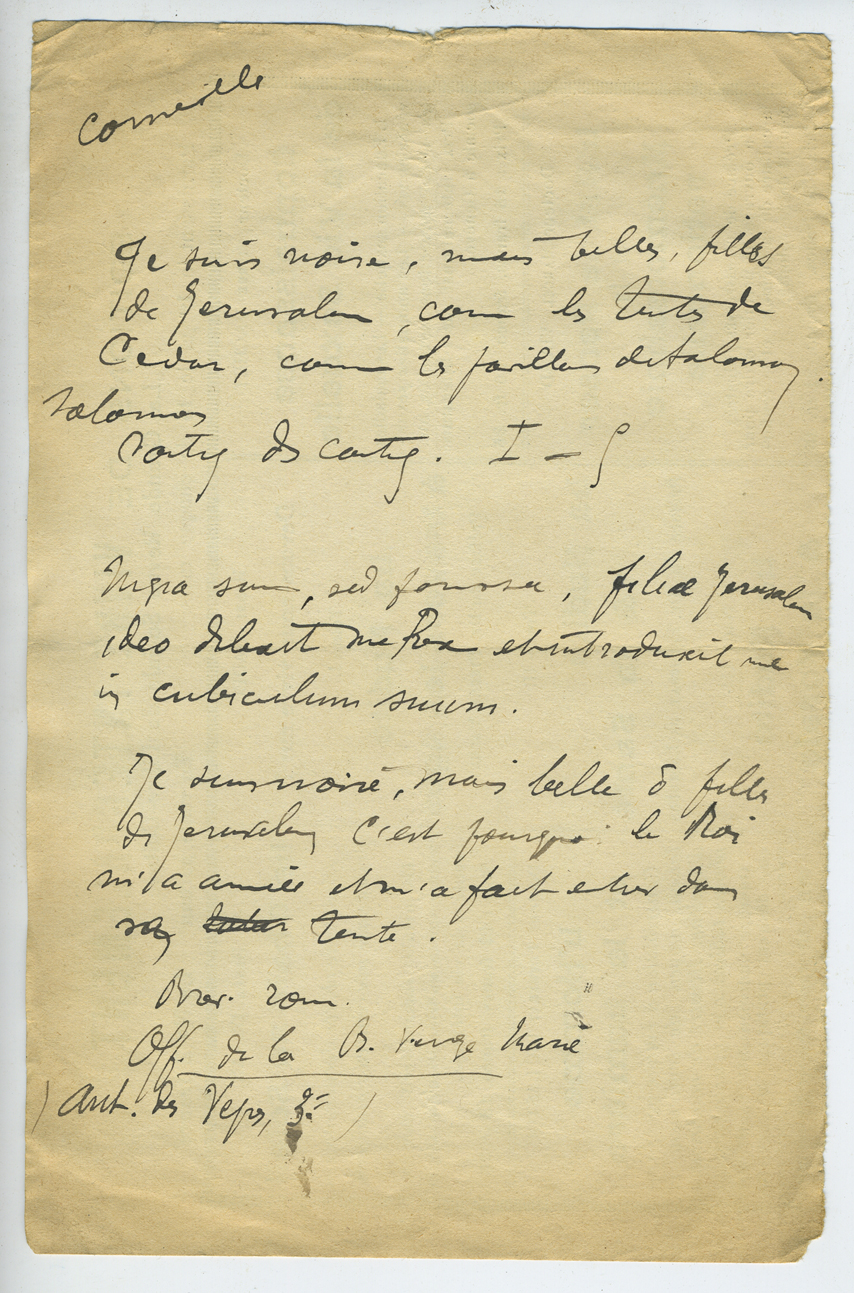 Corneille
Je suis noire, mais belle, filles
de Jerusalem, comme les tentes de
Cedar, comme les pavillons de Salomon.
Salomon
Cantiq des cantiq. I - 5
Nigra sum, sed formosa, filiae Jerusalem
ideo dilexit me Rex et introduxit me
in cubiculum suum.
Je suis noire, mais belle ô filles
de Jerusalem c'est pourquoi le Roi
m'a aimée et m'a fait entrer dans
sa tente.
Brev. rom.
Off. de la B. Vierge Marie
(Ant. des Vepres, 3e)